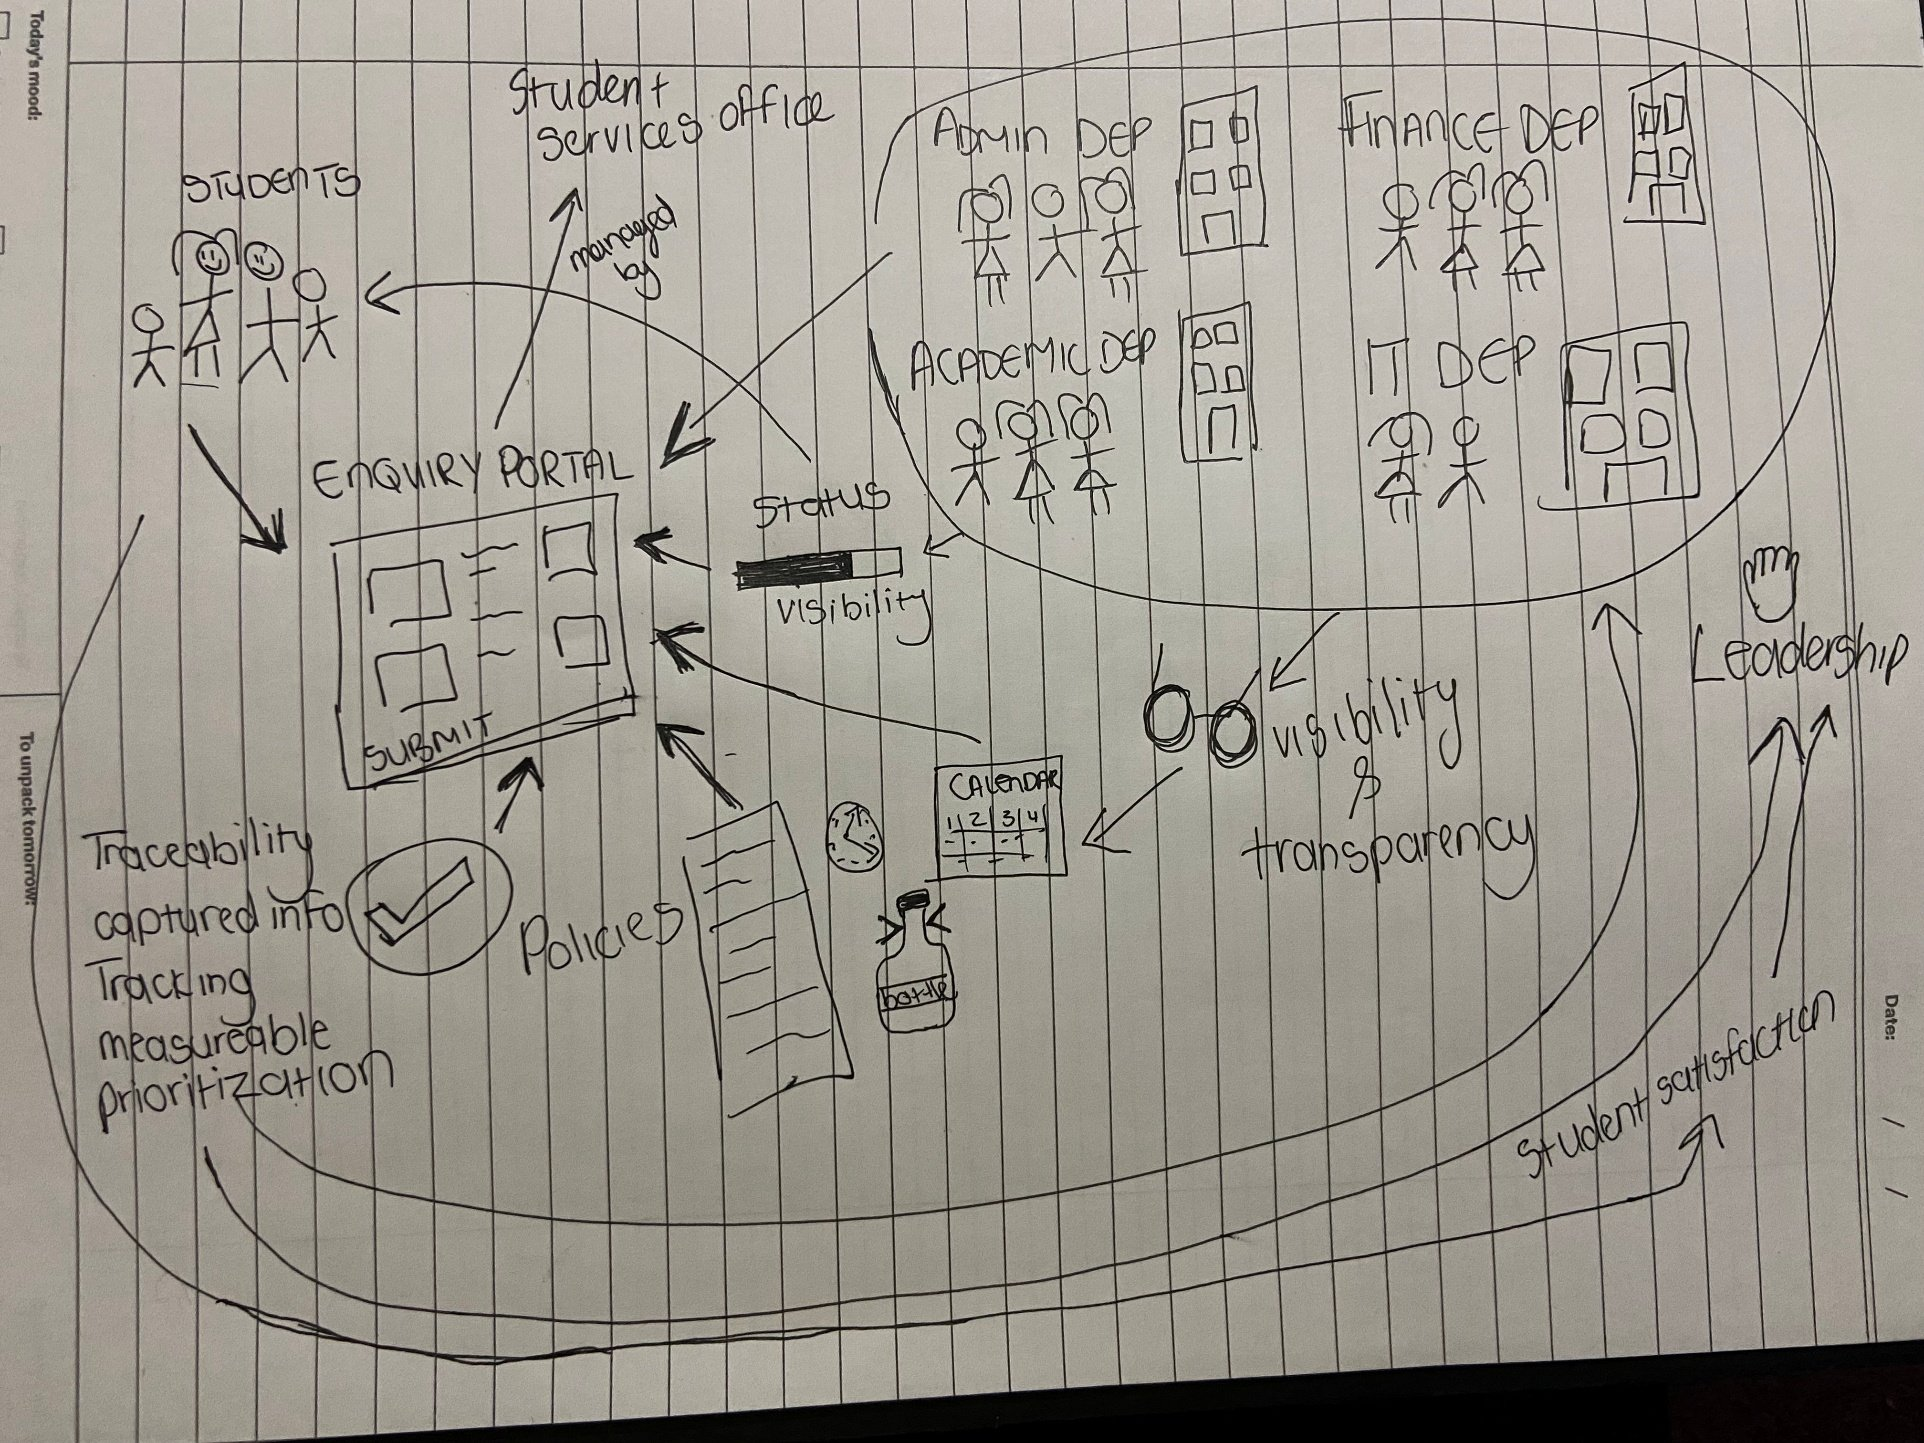 Today's mood:
To unpack tomorrow:
Date:
Student
services office
STUDENTS
managed
by
ADMIN DEP
FINANCE DEP
ACADEMIC DEP
IT DEP
ENQUIRY PORTAL
SUBMIT
Status
visibility
Leadership
visibility
&
transparency
CALENDAR
1 2 3 4
Traceability
captured info
Tracking
measureable
prioritization
Policies
bottle
Student satisfaction